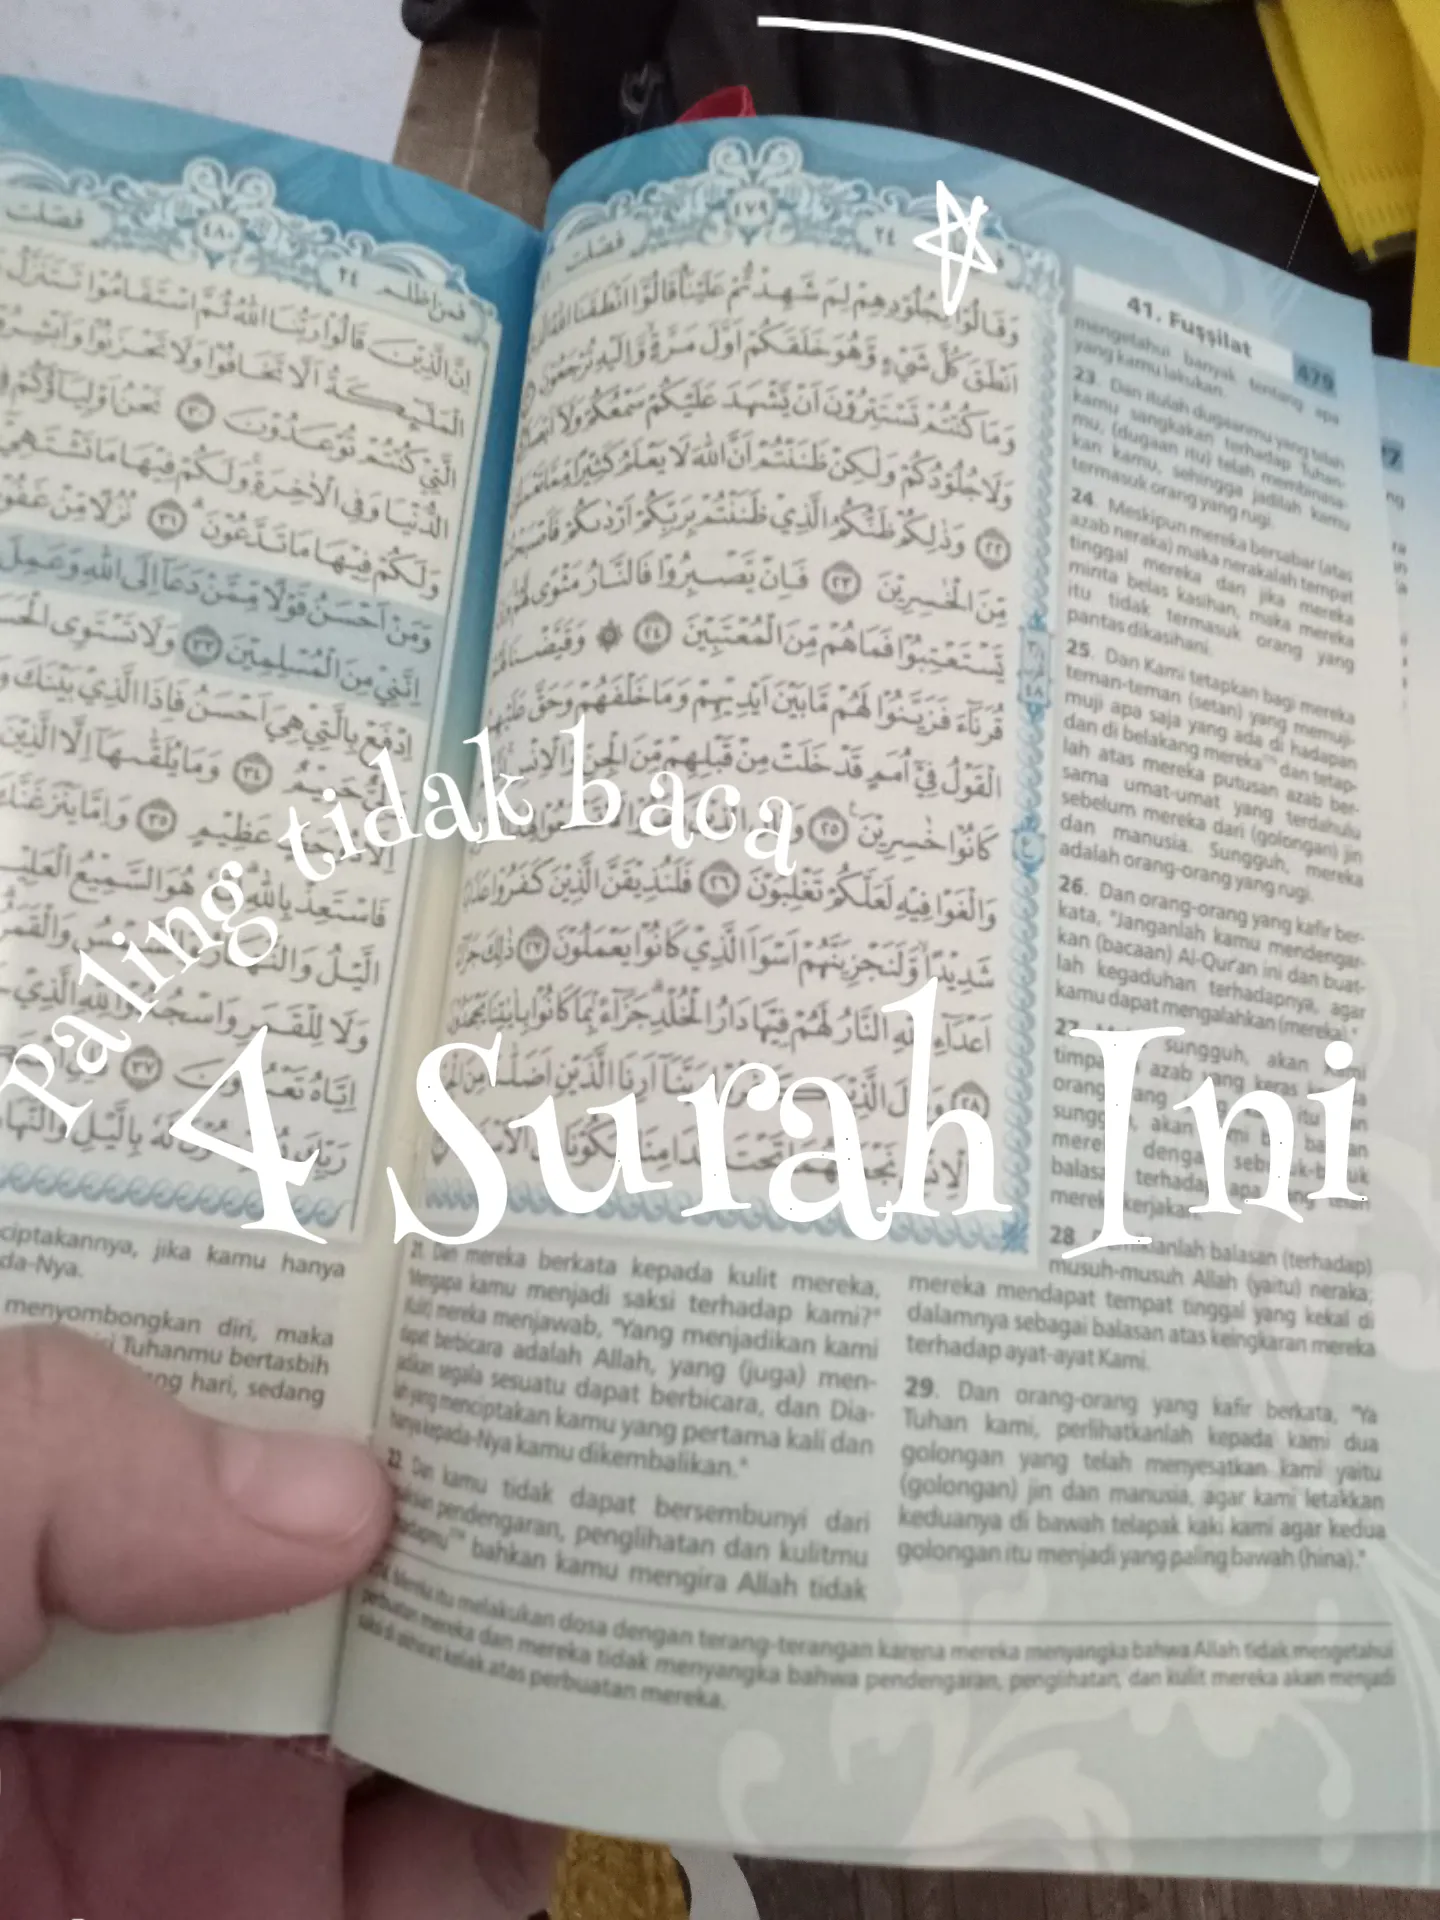 Paling tidak baca
4 Surah Ini
فصلت
٤٨٠
فمن اظلم ٢٤
اِنَّ الَّذِيْنَ قَالُوْا رَبُّنَا اللّٰهُ ثُمَّ اسْتَقَامُوْا تَتَنَزَّلُ
الْمَلٰۤىِٕكَةُ اَلَّا تَخَافُوْا وَلَا تَحْزَنُوْا وَاَبْشِرُوْا
الَّتِيْ كُنْتُمْ تُوْعَدُوْنَ ٣٠ نَحْنُ اَوْلِيَاۤؤُكُمْ
الدُّنْيَا وَفِى الْاٰخِرَةِ وَلَكُمْ فِيْهَا مَا تَشْتَهِيْٓ
وَلَكُمْ فِيْهَا مَا تَدَّعُوْنَ ٣١ نُزُلًا مِّنْ غَفُوْرٍ
وَمَنْ اَحْسَنُ قَوْلًا مِّمَّنْ دَعَآ اِلَى اللّٰهِ وَعَمِلَ
اِنَّنِيْ مِنَ الْمُسْلِمِيْنَ ٣٣ وَلَا تَسْتَوِى
اِدْفَعْ بِالَّتِيْ هِيَ اَحْسَنُ فَاِذَا الَّذِيْ بَيْنَكَ
حَمِيْمٌ ٣٤ وَمَا يُلَقّٰىهَآ اِلَّا الَّذِيْنَ
عَظِيْمٍ ٣٥ وَاِمَّا يَنْزَغَنَّكَ
فَاسْتَعِذْ بِاللّٰهِ هُوَ السَّمِيْعُ الْعَلِيْمُ
الَّيْلُ وَالنَّهَارُ وَالشَّمْسُ وَالْقَمَرُ
وَلَا لِلْقَمَرِ وَاسْجُدُوْا لِلّٰهِ الَّذِيْ
اِيَّاهُ تَعْبُدُوْنَ ٣٧
رَبِّكَ لَهٗ بِالَّيْلِ وَالنَّهَارِ
ciptakannya, jika kamu hanya
da-Nya.
menyombongkan diri, maka
Tuhanmu bertasbih
ng hari, sedang
فصلت
٤٧٩
٢٤
وَقَالُوْا لِجُلُوْدِهِمْ لِمَ شَهِدْتُّمْ عَلَيْنَا قَالُوْٓا اَنْطَقَنَا اللّٰهُ الَّذِيْٓ
اَنْطَقَ كُلَّ شَيْءٍ وَّهُوَ خَلَقَكُمْ اَوَّلَ مَرَّةٍ وَّاِلَيْهِ تُرْجَعُوْنَ
وَمَا كُنْتُمْ تَسْتَتِرُوْنَ اَنْ يَّشْهَدَ عَلَيْكُمْ سَمْعُكُمْ وَلَآ اَبْصَارُكُمْ
وَلَا جُلُوْدُكُمْ وَلٰكِنْ ظَنَنْتُمْ اَنَّ اللّٰهَ لَا يَعْلَمُ كَثِيْرًا مِّمَّا تَعْمَلُوْنَ
٢٢ وَذٰلِكُمْ ظَنُّكُمُ الَّذِيْ ظَنَنْتُمْ بِرَبِّكُمْ اَرْدٰىكُمْ فَاَصْبَحْتُمْ
مِّنَ الْخٰسِرِيْنَ ٢٣ فَاِنْ يَّصْبِرُوْا فَالنَّارُ مَثْوًى لَّهُمْ وَاِنْ
يَّسْتَعْتِبُوْا فَمَا هُمْ مِّنَ الْمُعْتَبِيْنَ ٢٤ وَقَيَّضْنَا لَهُمْ
قُرَنَاۤءَ فَزَيَّنُوْا لَهُمْ مَّا بَيْنَ اَيْدِيْهِمْ وَمَا خَلْفَهُمْ وَحَقَّ عَلَيْهِمُ
الْقَوْلُ فِيْٓ اُمَمٍ قَدْ خَلَتْ مِنْ قَبْلِهِمْ مِّنَ الْجِنِّ وَالْاِنْسِ
كَانُوْا خٰسِرِيْنَ ٢٥
وَالْغَوْا فِيْهِ لَعَلَّكُمْ تَغْلِبُوْنَ ٢٦ فَلَنُذِيْقَنَّ الَّذِيْنَ كَفَرُوْا عَذَابًا
شَدِيْدًا وَّلَنَجْزِيَنَّهُمْ اَسْوَاَ الَّذِيْ كَانُوْا يَعْمَلُوْنَ ٢٧ ذٰلِكَ جَزَاۤءُ
اَعْدَاۤءِ اللّٰهِ النَّارُ لَهُمْ فِيْهَا دَارُ الْخُلْدِ جَزَاۤءً بِمَا كَانُوْا بِاٰيٰتِنَا يَجْحَدُوْنَ
٢٨ وَقَالَ الَّذِيْنَ رَبَّنَآ اَرِنَا الَّذَيْنِ اَضَلّٰنَا مِنَ الْجِنِّ
41. Fuṣṣilat
479
mengetahui banyak tentang apa
yang kamu lakukan.
23. Dan itulah dugaanmu yang telah
kamu sangkakan terhadap Tuhan-
mu, (dugaan itu) telah membinasa-
kan kamu, sehingga jadilah kamu
termasuk orang yang rugi.
24. Meskipun mereka bersabar (atas
azab neraka) maka nerakalah tempat
tinggal mereka dan jika mereka
minta belas kasihan, maka mereka
itu tidak termasuk orang yang
pantas dikasihani.
25. Dan Kami tetapkan bagi mereka
teman-teman (setan) yang memuji-
muji apa saja yang ada di hadapan
dan di belakang mereka dan tetap-
lah atas mereka putusan azab ber-
sama umat-umat yang terdahulu
sebelum mereka dari (golongan) jin
dan manusia. Sungguh, mereka
adalah orang-orang yang rugi.
26. Dan orang-orang yang kafir ber-
kata, "Janganlah kamu mendengar-
kan (bacaan) Al-Qur'an ini dan buat-
lah kegaduhan terhadapnya, agar
kamu dapat mengalahkan (mereka)."
27. sungguh, akan Kami
azab yang keras
orang
akan
mereka dengan
balasan terhadap apa yang telah
mereka kerjakan.
28. Demikianlah balasan (terhadap)
musuh-musuh Allah (yaitu) neraka;
mereka mendapat tempat tinggal yang kekal di
dalamnya sebagai balasan atas keingkaran mereka
terhadap ayat-ayat Kami.
29. Dan orang-orang yang kafir berkata, "Ya
Tuhan kami, perlihatkanlah kepada kami dua
golongan yang telah menyesatkan kami yaitu
(golongan) jin dan manusia, agar kami letakkan
keduanya di bawah telapak kaki kami agar kedua
golongan itu menjadi yang paling bawah (hina)."
21. Dan mereka berkata kepada kulit mereka,
"Mengapa kamu menjadi saksi terhadap kami?"
(Kulit) mereka menjawab, "Yang menjadikan kami
dapat berbicara adalah Allah, yang (juga) men-
jadikan segala sesuatu dapat berbicara, dan Dia-
lah yang menciptakan kamu yang pertama kali dan
hanya kepada-Nya kamu dikembalikan."
22. Dan kamu tidak dapat bersembunyi dari
pendengaran, penglihatan dan kulitmu
bahkan kamu mengira Allah tidak
Mereka itu melakukan dosa dengan terang-terangan karena mereka menyangka bahwa Allah tidak mengetahui
perbuatan mereka dan mereka tidak menyangka bahwa pendengaran, penglihatan, dan kulit mereka akan menjadi
saksi di akhirat kelak atas perbuatan mereka.